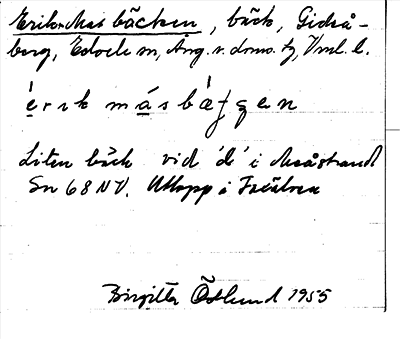 Erik-Mas bäcken, bäck, Gidså-
berg, Edsele sn, Ång. s. doms. tg, Vml. l.
é r i k m á s b ǽ ʃ ɡ e n
Liten bäck vid 'd' i Mosåstrand
Sn 68 NV. Utlopp i
Birgitta Östlund 1955